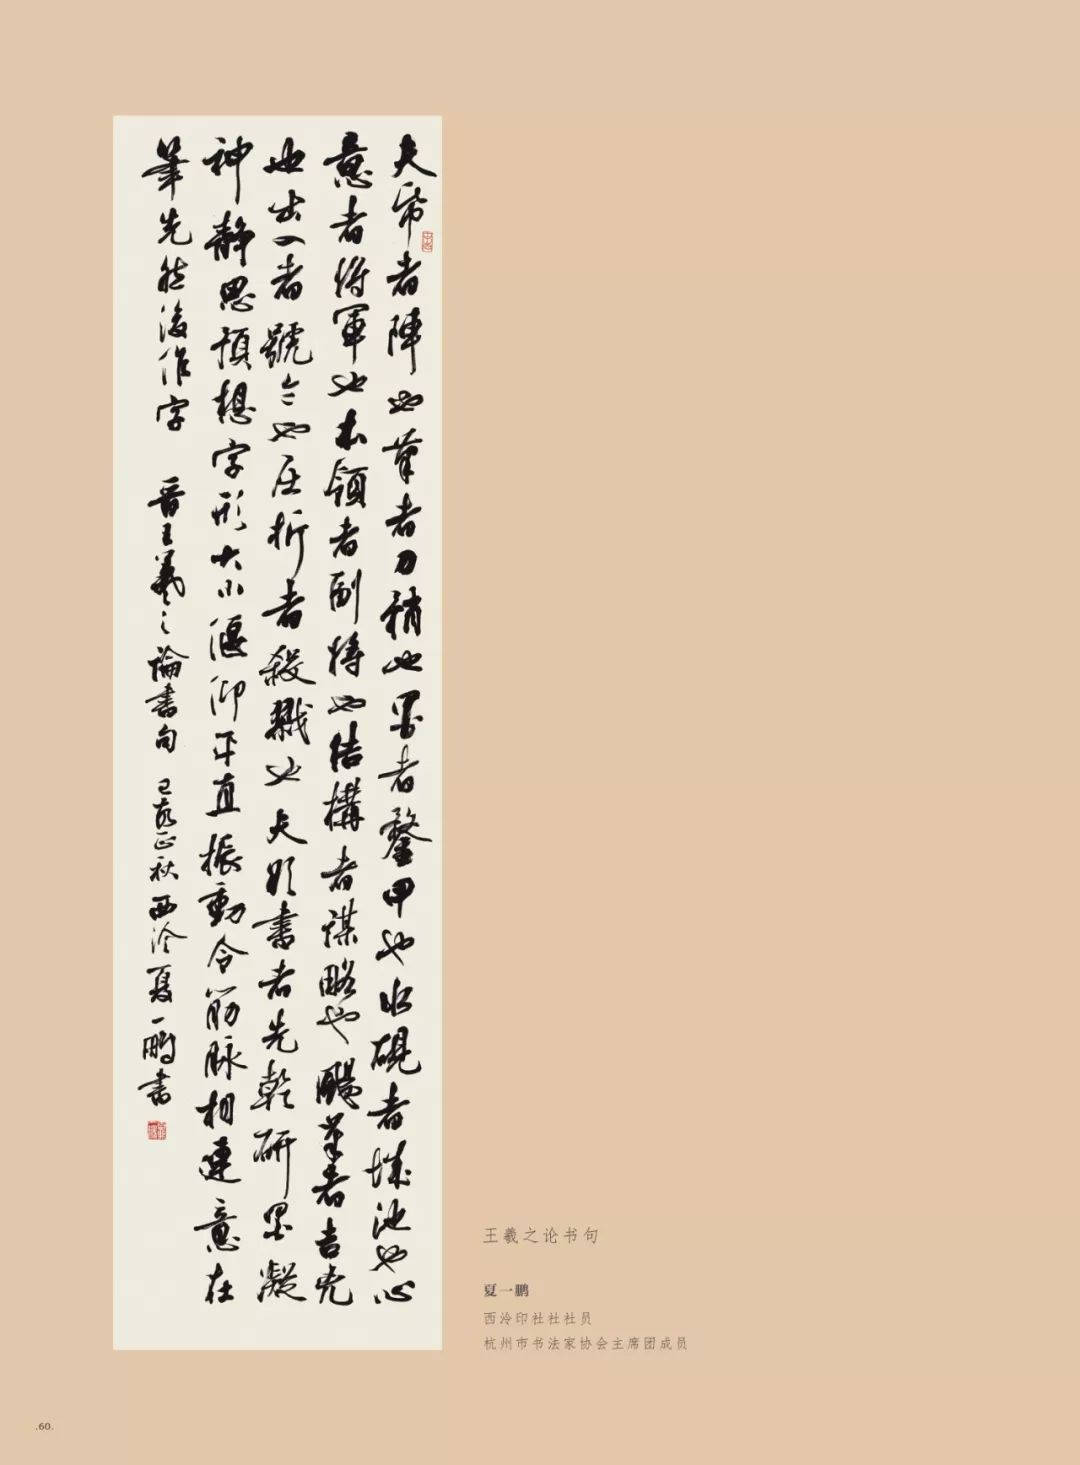 夫紙者陣也筆者刀矟也墨者鍪甲也水硯者城池也心
意者將軍也本領者副將也結構者謀略也颺筆者吉凶
也出入者號令也屈折者殺戮也夫欲書者先乾研墨凝
神靜思預想字形大小偃仰平直振動令筋脉相連意在
筆先然後作字 晉王羲之論書句 己亥正秋西泠夏一鵬書
王羲之论书句
夏一鹏
西泠印社社社员
杭州市书法家协会主席团成员
.60.